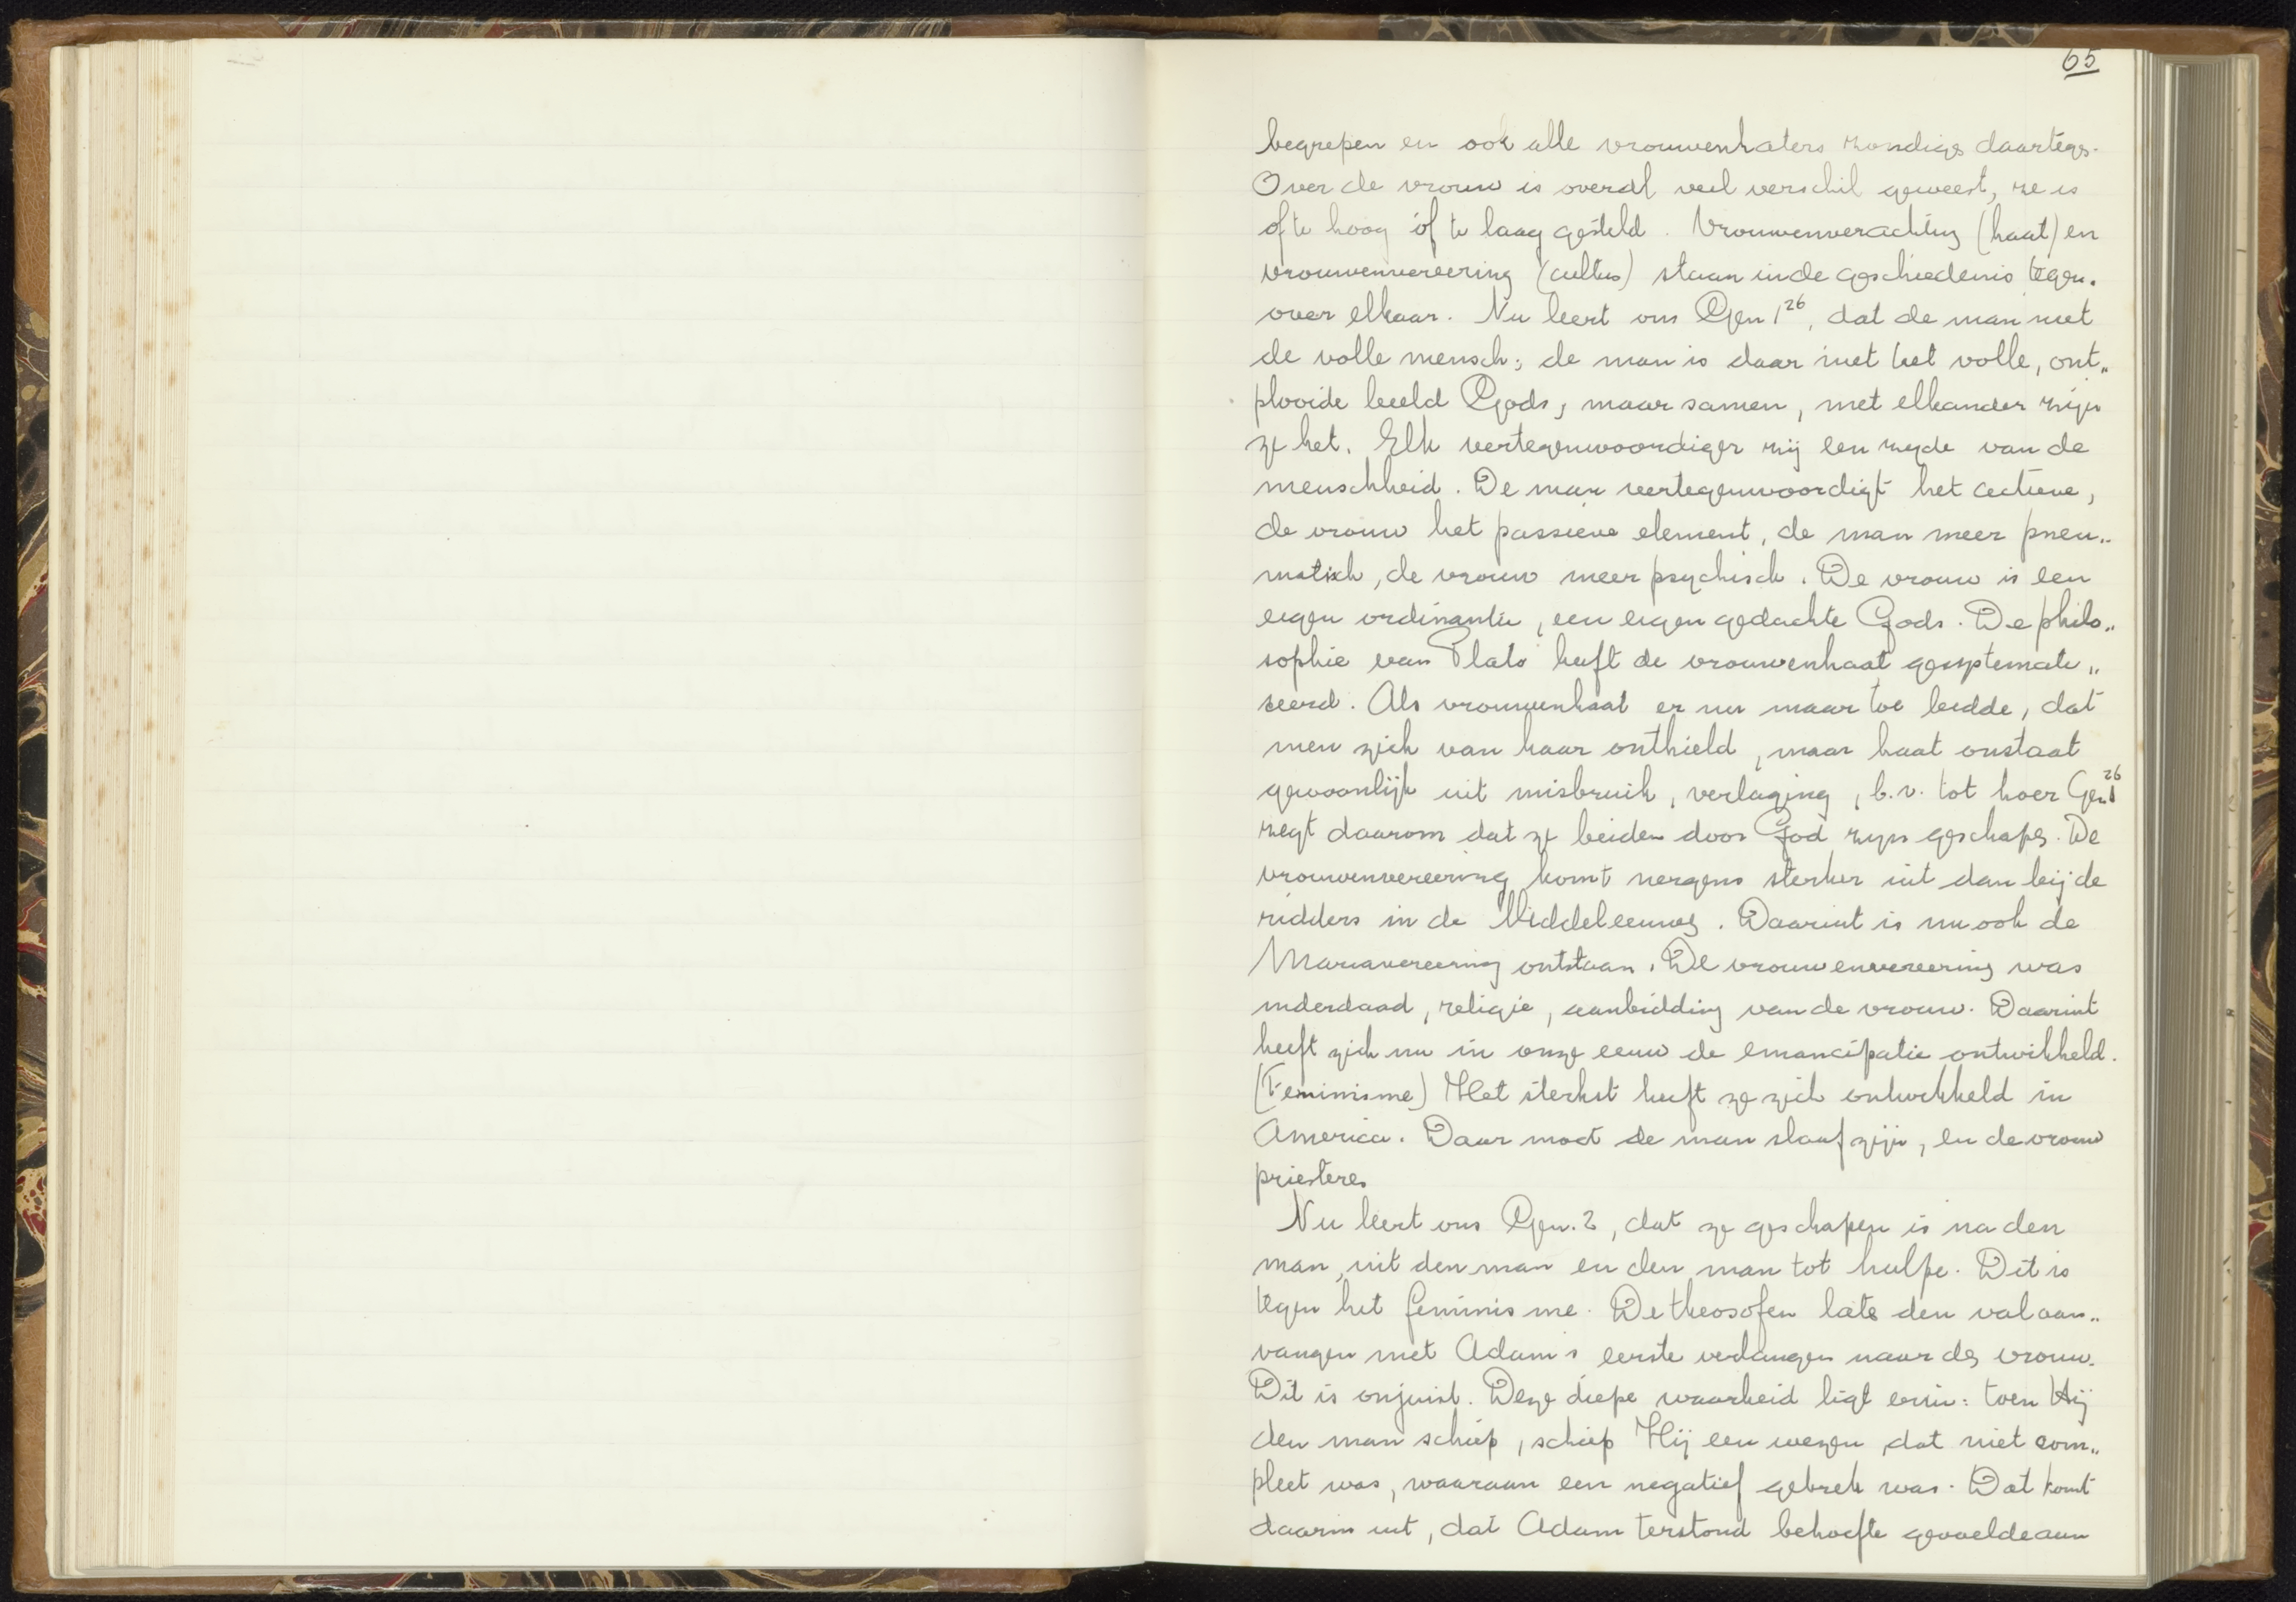 65
begrepen en ook alle vrouwenhaters zondigs daartegs.
Over de vrouw is overal veel verschil geweest, ze is
of te hoog óf te laag gesteld. Vrouwenverachting (haat) en
vrouwenvereering (cultus) staan in de geschiedenis tegen„
over elkaar. Nu leert ons Gen 1²⁶, dat de man niet
de volle mensch; de man is daar niet het volle, ont„
plooide beeld Gods, maar samen, met elkander zijn
ze het. Elk vertegenwoordiger zij een zyde van de
menschheid. De man vertegenwoordigt het actieve,
de vrouw het passieve element, de man meer pneu„
matisch, de vrouw meer psychisch. De vrouw is een
eigen ordinantie, een eigen gedachte Gods. De philo„
sophie van Plato heeft de vrouwenhaat gesystemati„
seerd. Als vrouwenhaat er nu maar toe leidde, dat
men zich van haar onthield, maar haat onstaat
gewoonlijk uit misbruik, verlaging, b.v. tot hoer Gen 1²⁶
zegt daarom dat ze beiden door God zyn geschapen. De
vrouwenvereering komt nergens sterker uit dan bij de
ridders in de Middeleeuwen. Daaruit is nu ook de
Mariavereering ontstaan. De vrouwenvereering was
inderdaad, religie, aanbidding van de vrouw. Daaruit
heeft zich nu in onze eeuw de emancipatie ontwikkeld.
(Feminisme) Het sterkst heeft ze zich ontwikkeld in
America. Daar moet de man slaaf zijn, en de vrouw
priesteres
Nu leert ons Gen. 2, dat ze geschapen is na den
man, uit den man en den man tot hulpe. Dit is
tegen het feminisme. De theosofen laten den val aan„
vangen met Adam's eerste verlangen naar de vrouw.
Dit is onjuist. Deze diepe waarheid ligt erin: toen Hij
den man schiep, schiep Hij een wezen, dat niet com„
pleet was, waaraan een negatief gebrek was. Dat komt
daarin uit, dat Adam terstond behoefte gevoelde aan